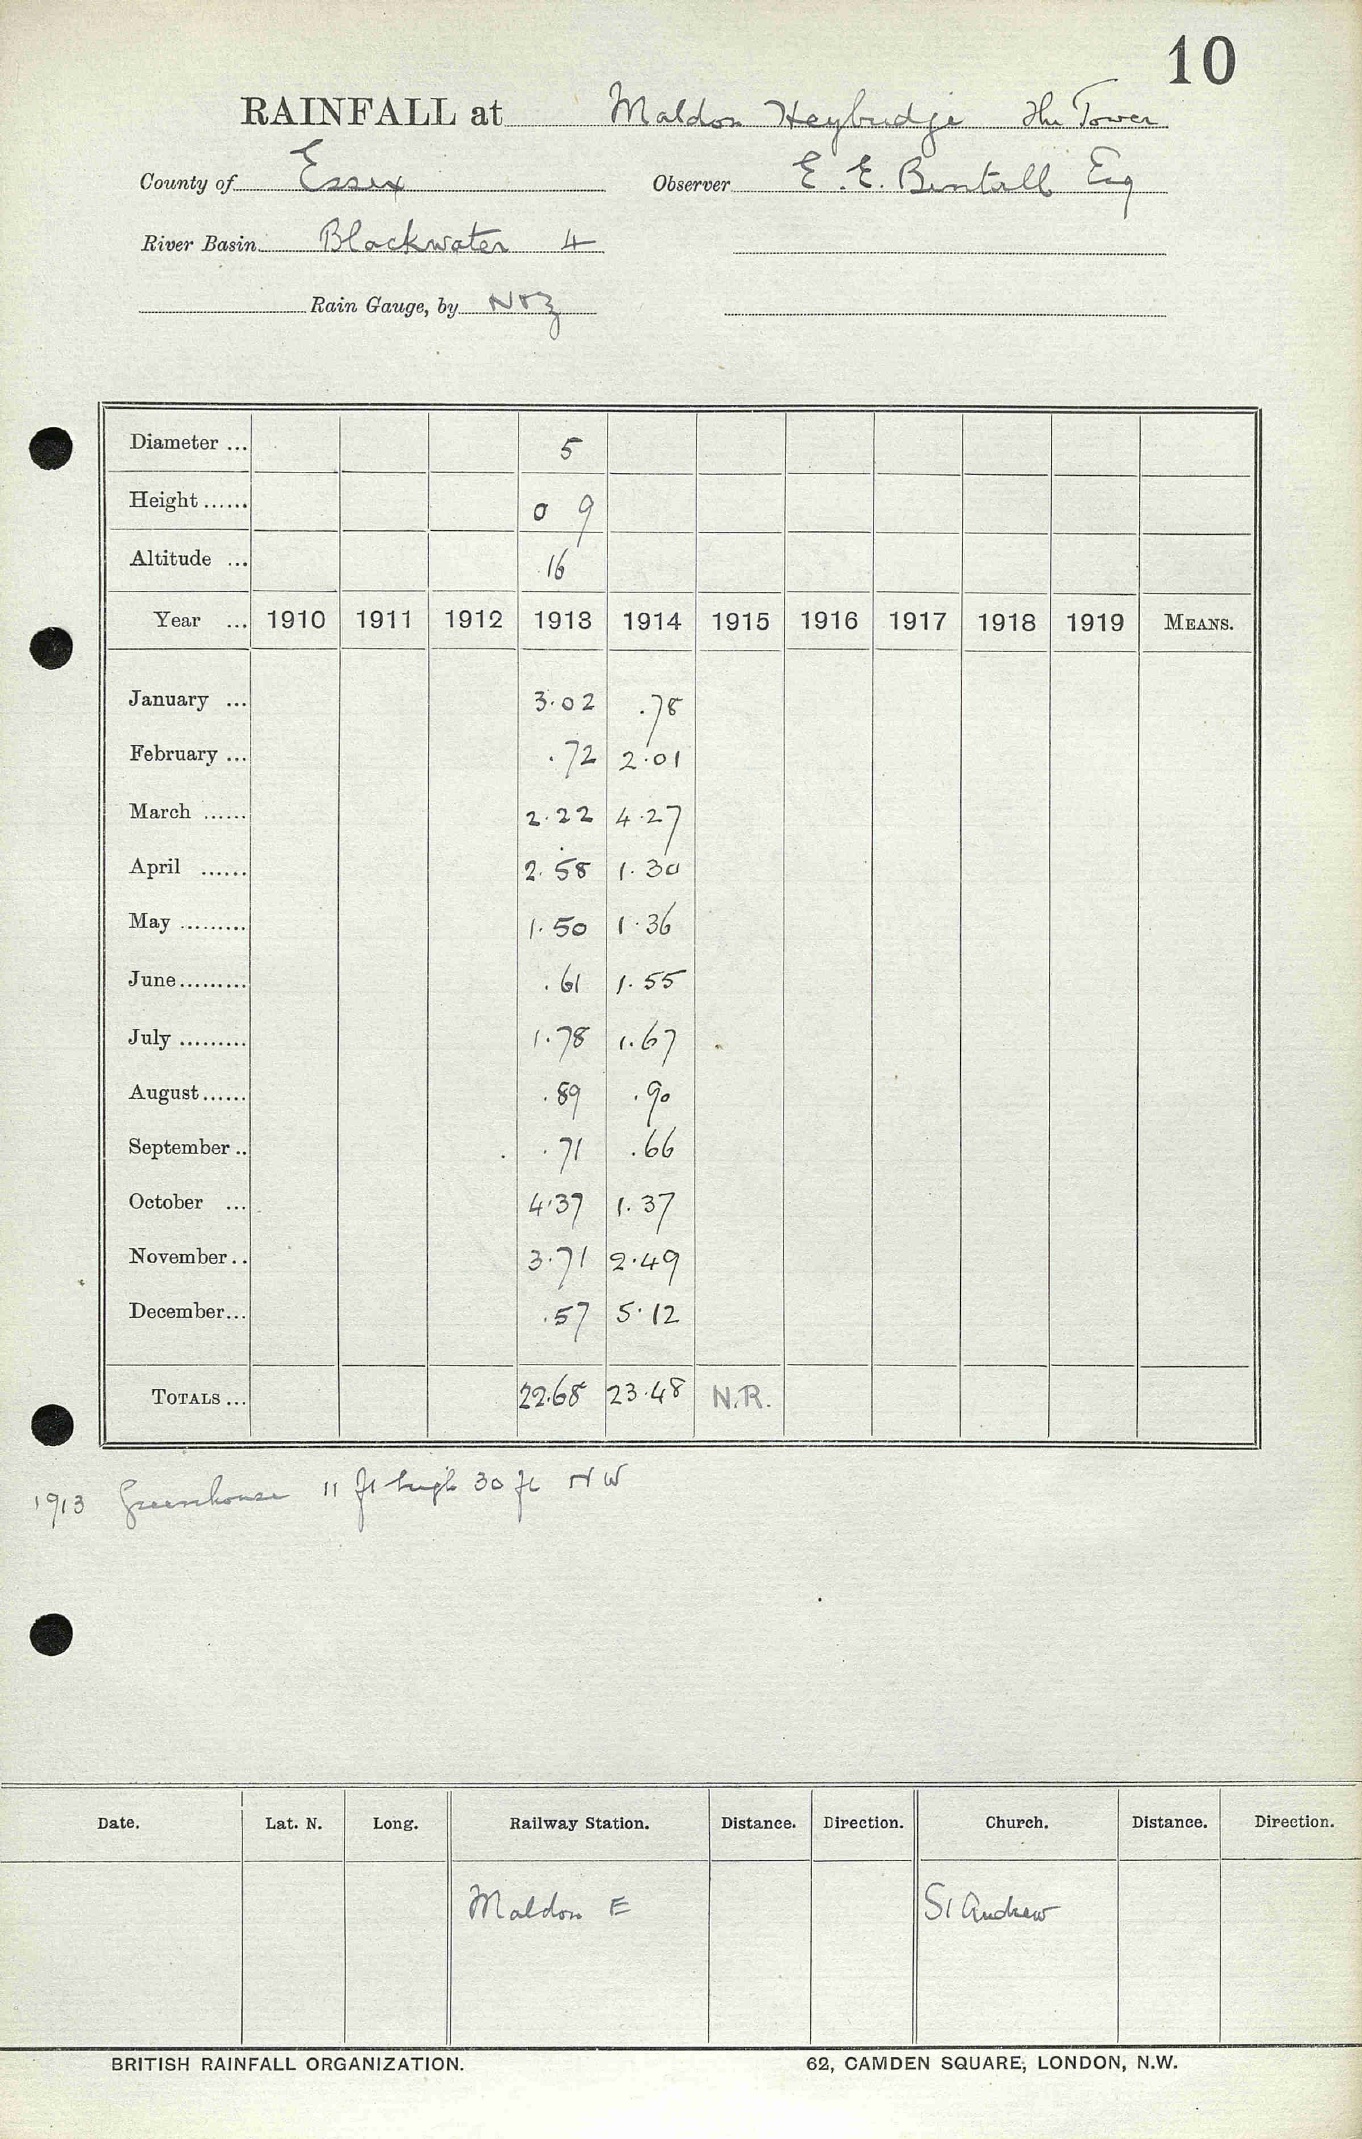 10
RAINFALL at Maldon Heybridge The Tower
County of Essex Observer E. E. Bentall Esq
River Basin Blackwater 4
Rain Gauge, by N & Z
Diameter ... 5
Height ...... 0 9
Altitude ... 16
Year ... 1910 1911 1912 1913 1914 1915 1916 1917 1918 1919 MEANS.
January ... 3.02 .78
February ... .72 2.01
March ...... 2.22 4.27
April ...... 2.58 1.30
May ......... 1.50 1.36
June ......... .61 1.55
July ......... 1.78 1.67
August ...... .89 .90
September .. .71 .66
October ... 4.37 1.37
November .. 3.71 2.49
December ... .57 5.12
TOTALS ... 22.68 23.48 N.R.
1913 Greenhouse 11 ft high 30 ft NW
Date. Lat. N. Long. Railway Station. Distance. Direction. Church. Distance. Direction.
Maldon E St Andrew
BRITISH RAINFALL ORGANIZATION. 62, CAMDEN SQUARE, LONDON, N.W.